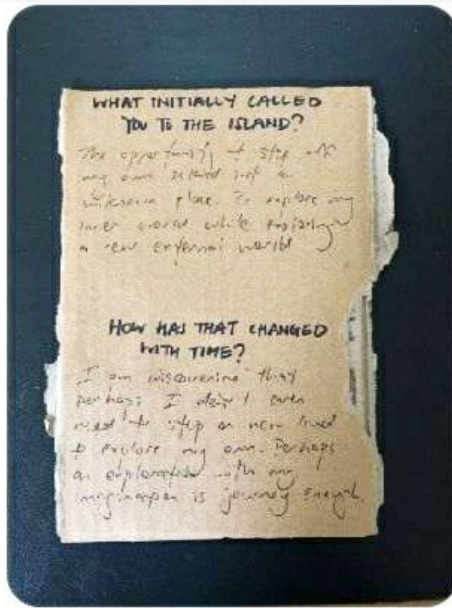 WHAT INITIALLY CALLED
YOU TO THE ISLAND?
The opportunity to step off
my own island into a
different place. To explore my
inner world while exploring
a new external world
HOW HAS THAT CHANGED
WITH TIME?
I am discovering that
perhaps I don't even
need to step on new land
to explore my own. Perhaps
an exploration with my
imagination is journey enough